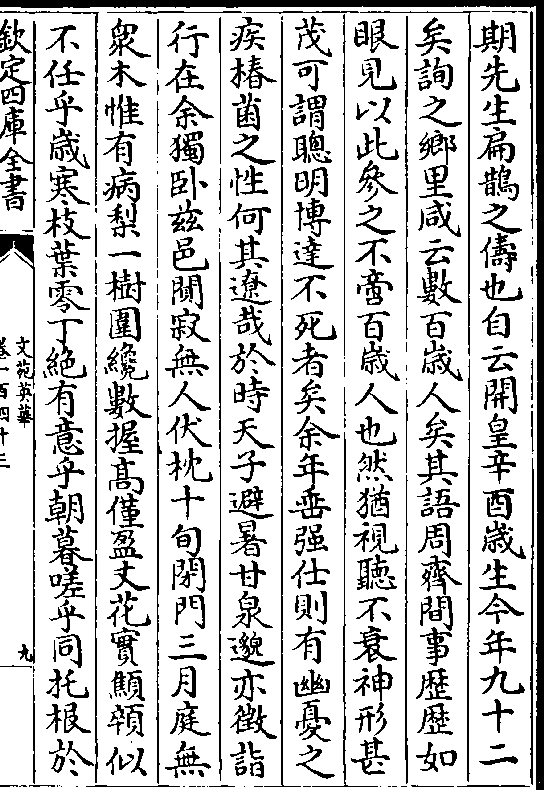 期先生扁鵲之儔也自云開皇辛酉歳生今年九十二
矣詢之鄉里咸云數百歳人矣其語周齊間事歴歴如
眼見以此參之不啻百歳人也然猶視聽不衰神形甚
茂可謂聰明博達不死者矣余年垂强仕則有幽憂之
疾椿菌之性何其遼哉於時天子避暑甘泉邈亦徵詣
行在余獨卧兹邑闃寂無人伏枕十旬閉門三月庭無
衆木惟有病梨一樹圍纔數握髙僅盈丈花實顦顇似
不任乎歳寒枝葉零丁絶有意乎朝暮嗟乎同托根於
欽定四庫全書
文苑英華
卷一百四十三
九